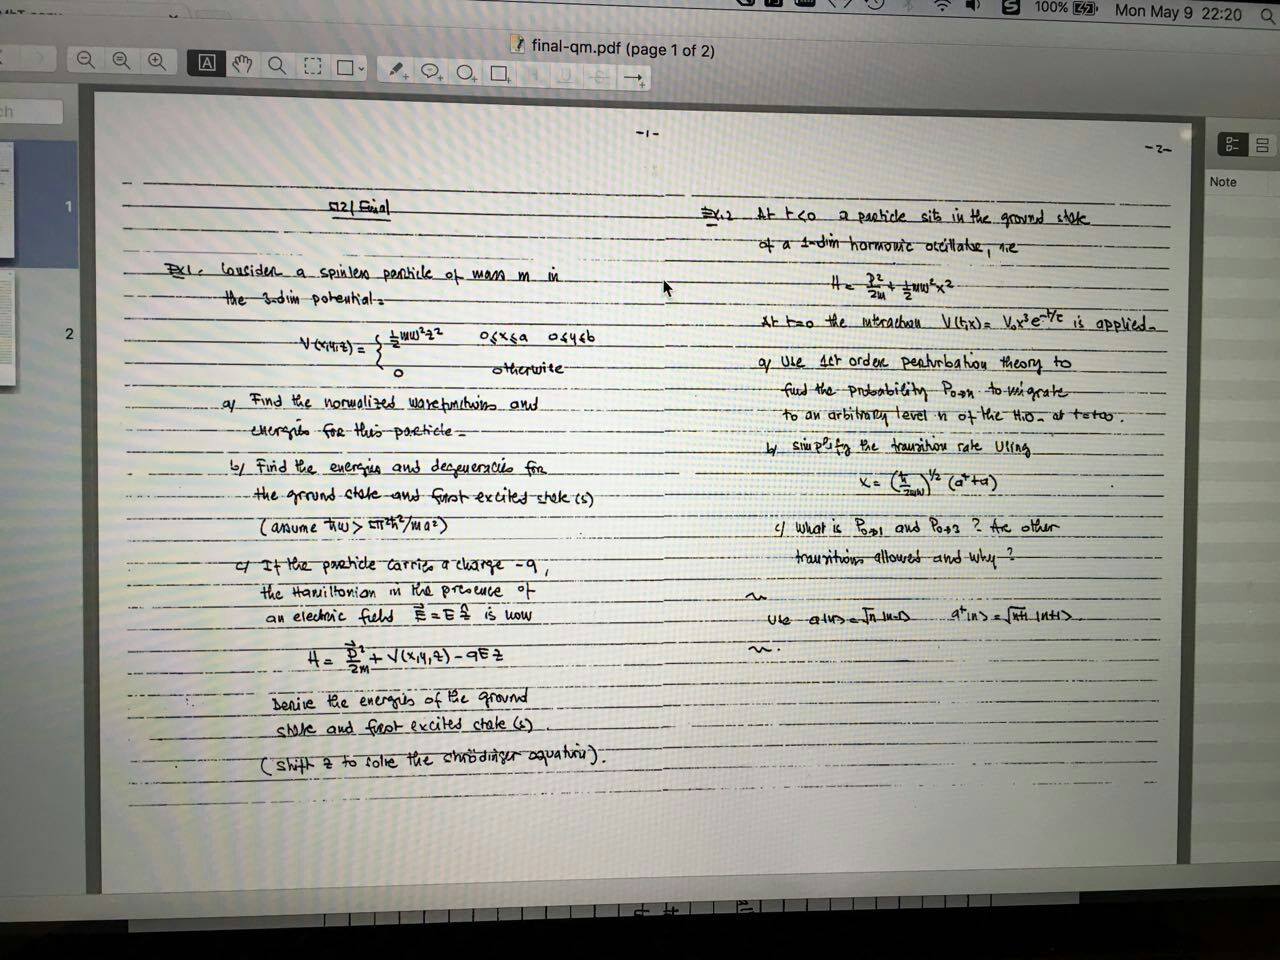 100%
Mon May 9 22:20
final-qm.pdf (page 1 of 2)
Note
1
2
-1-
521 Final
Ex1. Consider a spinless particle of mass m in
the 3-dim potential:
V(x,y,z) = { ½mω²z² 0≤x≤a 0≤y≤b
0 otherwise
a) Find the normalized wavefunctions and
energies for this particle.
b) Find the energies and degeneracies for
the ground state and first excited state(s)
(assume ħω > 5π²ħ²/ma²)
c) If the particle carries a charge -q,
the Hamiltonian in the presence of
an electric field E⃗ = E ẑ is now
H = P⃗²/2m + V(x,y,z) - qEz
Derive the energies of the ground
state and first excited state(s).
(shift z to solve the schrödinger equation).
-2-
Ex.2 At t<0 a particle sits in the ground state
of a 1-dim harmonic oscillator, i.e
H = P²/2m + ½mω²x²
At t=0 the interaction V(t,x) = V₀x³e^(-t/τ) is applied.
a) Use 1st order perturbation theory to
find the probability P₀→n to migrate
to an arbitrary level n of the H.O. at t=+∞.
b) simplify the transition rate using
x = (ħ/2mω)^1/2 (a⁺+a)
c) What is P₀→1 and P₀→3 ? Are other
transitions allowed and why?
~
Use a|n> = √n |n-1> a⁺|n> = √n+1 |n+1>.
~.